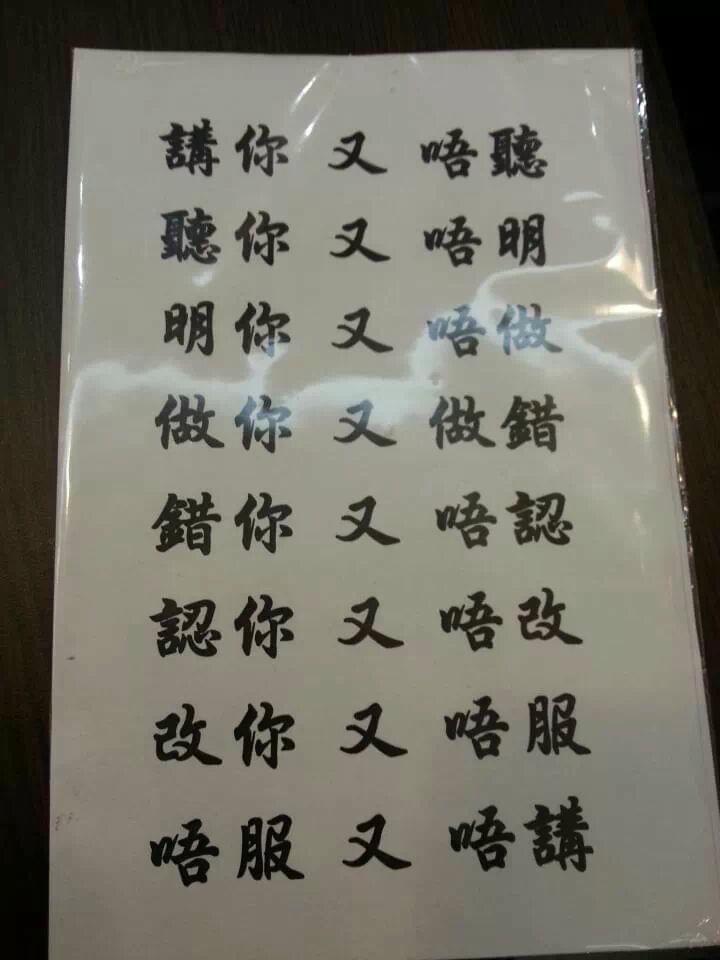 講你又唔聽
聽你又唔明
明你又唔做
做你又做錯
錯你又唔認
認你又唔改
改你又唔服
唔服又唔講